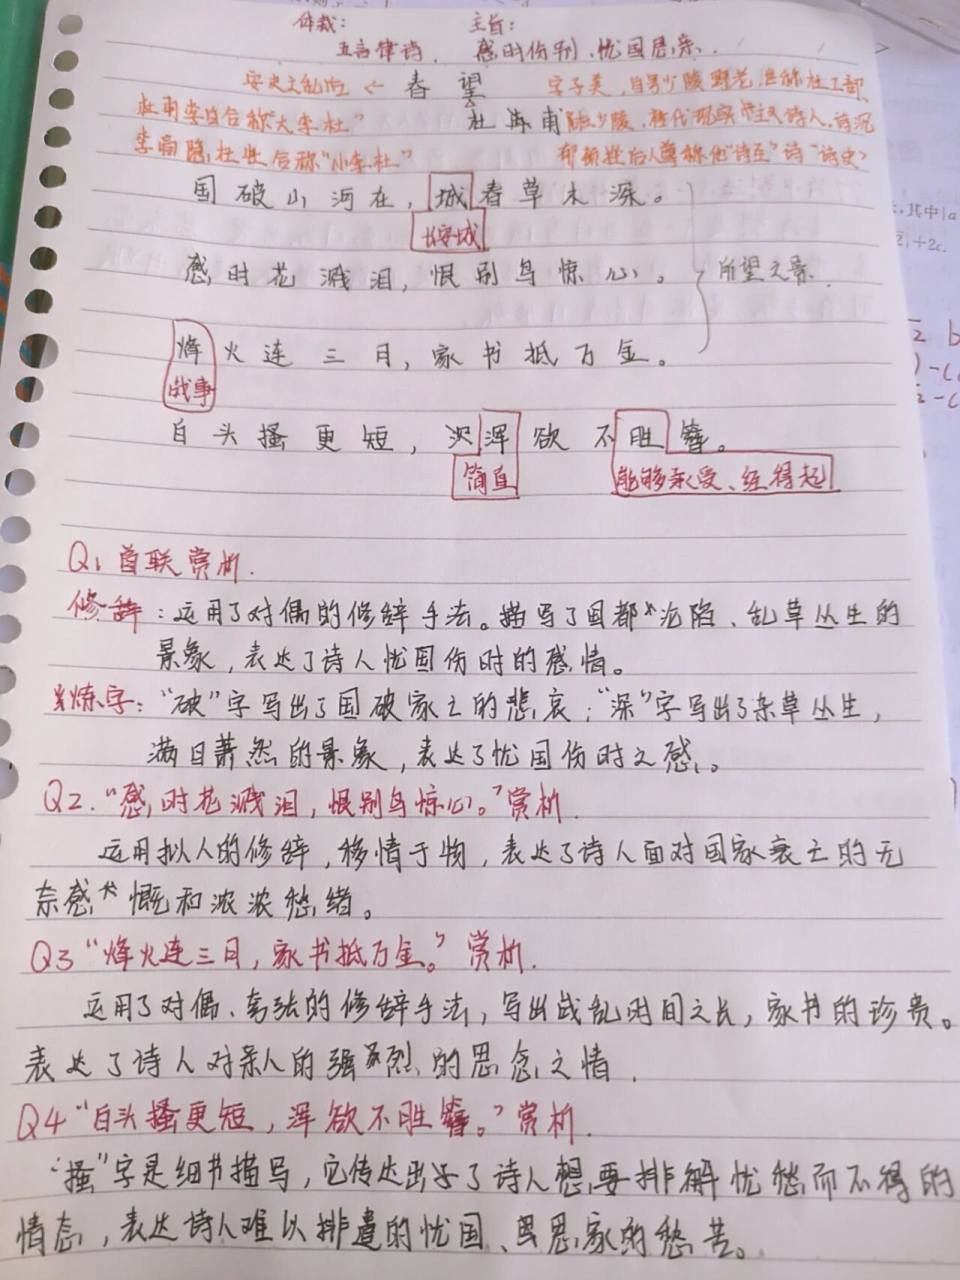 体裁： 主旨：
五言律诗． 感时伤别，忧国思亲．
安史之乱后 ← 春望 字子美，自号少陵野老，世称杜工部、
杜甫李白合称"大李杜" 杜甫 杜少陵，唐代现实主义诗人，诗沉
李商隐，杜牧合称"小李杜" 郁顿挫后人尊称他"诗圣"诗"诗史"
国破山河在，城春草木深。
长安城
感时花溅泪，恨别鸟惊心。 所望之景．
烽火连三月，家书抵万金。
战事
白头搔更短，浑欲不胜簪。
简直 能够承受、经得起
Q1 首联赏析．
修辞：运用了对偶的修辞手法。描写了国都沦陷、乱草丛生的
景象，表达了诗人忧国伤时的感情。
炼字："破"字写出了国破家亡的悲哀；"深"字写出了杂草丛生，
满目萧然的景象，表达了忧国伤时之感。
Q2．"感时花溅泪，恨别鸟惊心。"赏析．
运用拟人的修辞，移情于物，表达了诗人面对国家衰亡的无
奈感慨和浓浓愁绪。
Q3"烽火连三月，家书抵万金。"赏析．
运用了对偶、夸张的修辞手法，写出战乱时间之长，家书的珍贵。
表达了诗人对亲人的强烈的思念之情．
Q4"白头搔更短，浑欲不胜簪。"赏析．
"搔"字是细节描写，它传达出了诗人想要排解忧愁而不得的
情态，表达诗人难以排遣的忧国、思家的愁苦。